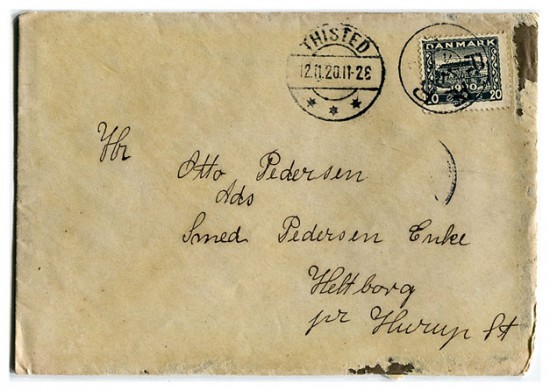 THISTED
12.11.20.11-2E
DANMARK
20 20
Hr
Otto Pedersen
Ads
Smed Pedersen Enke
Heltborg
pr Hurup St